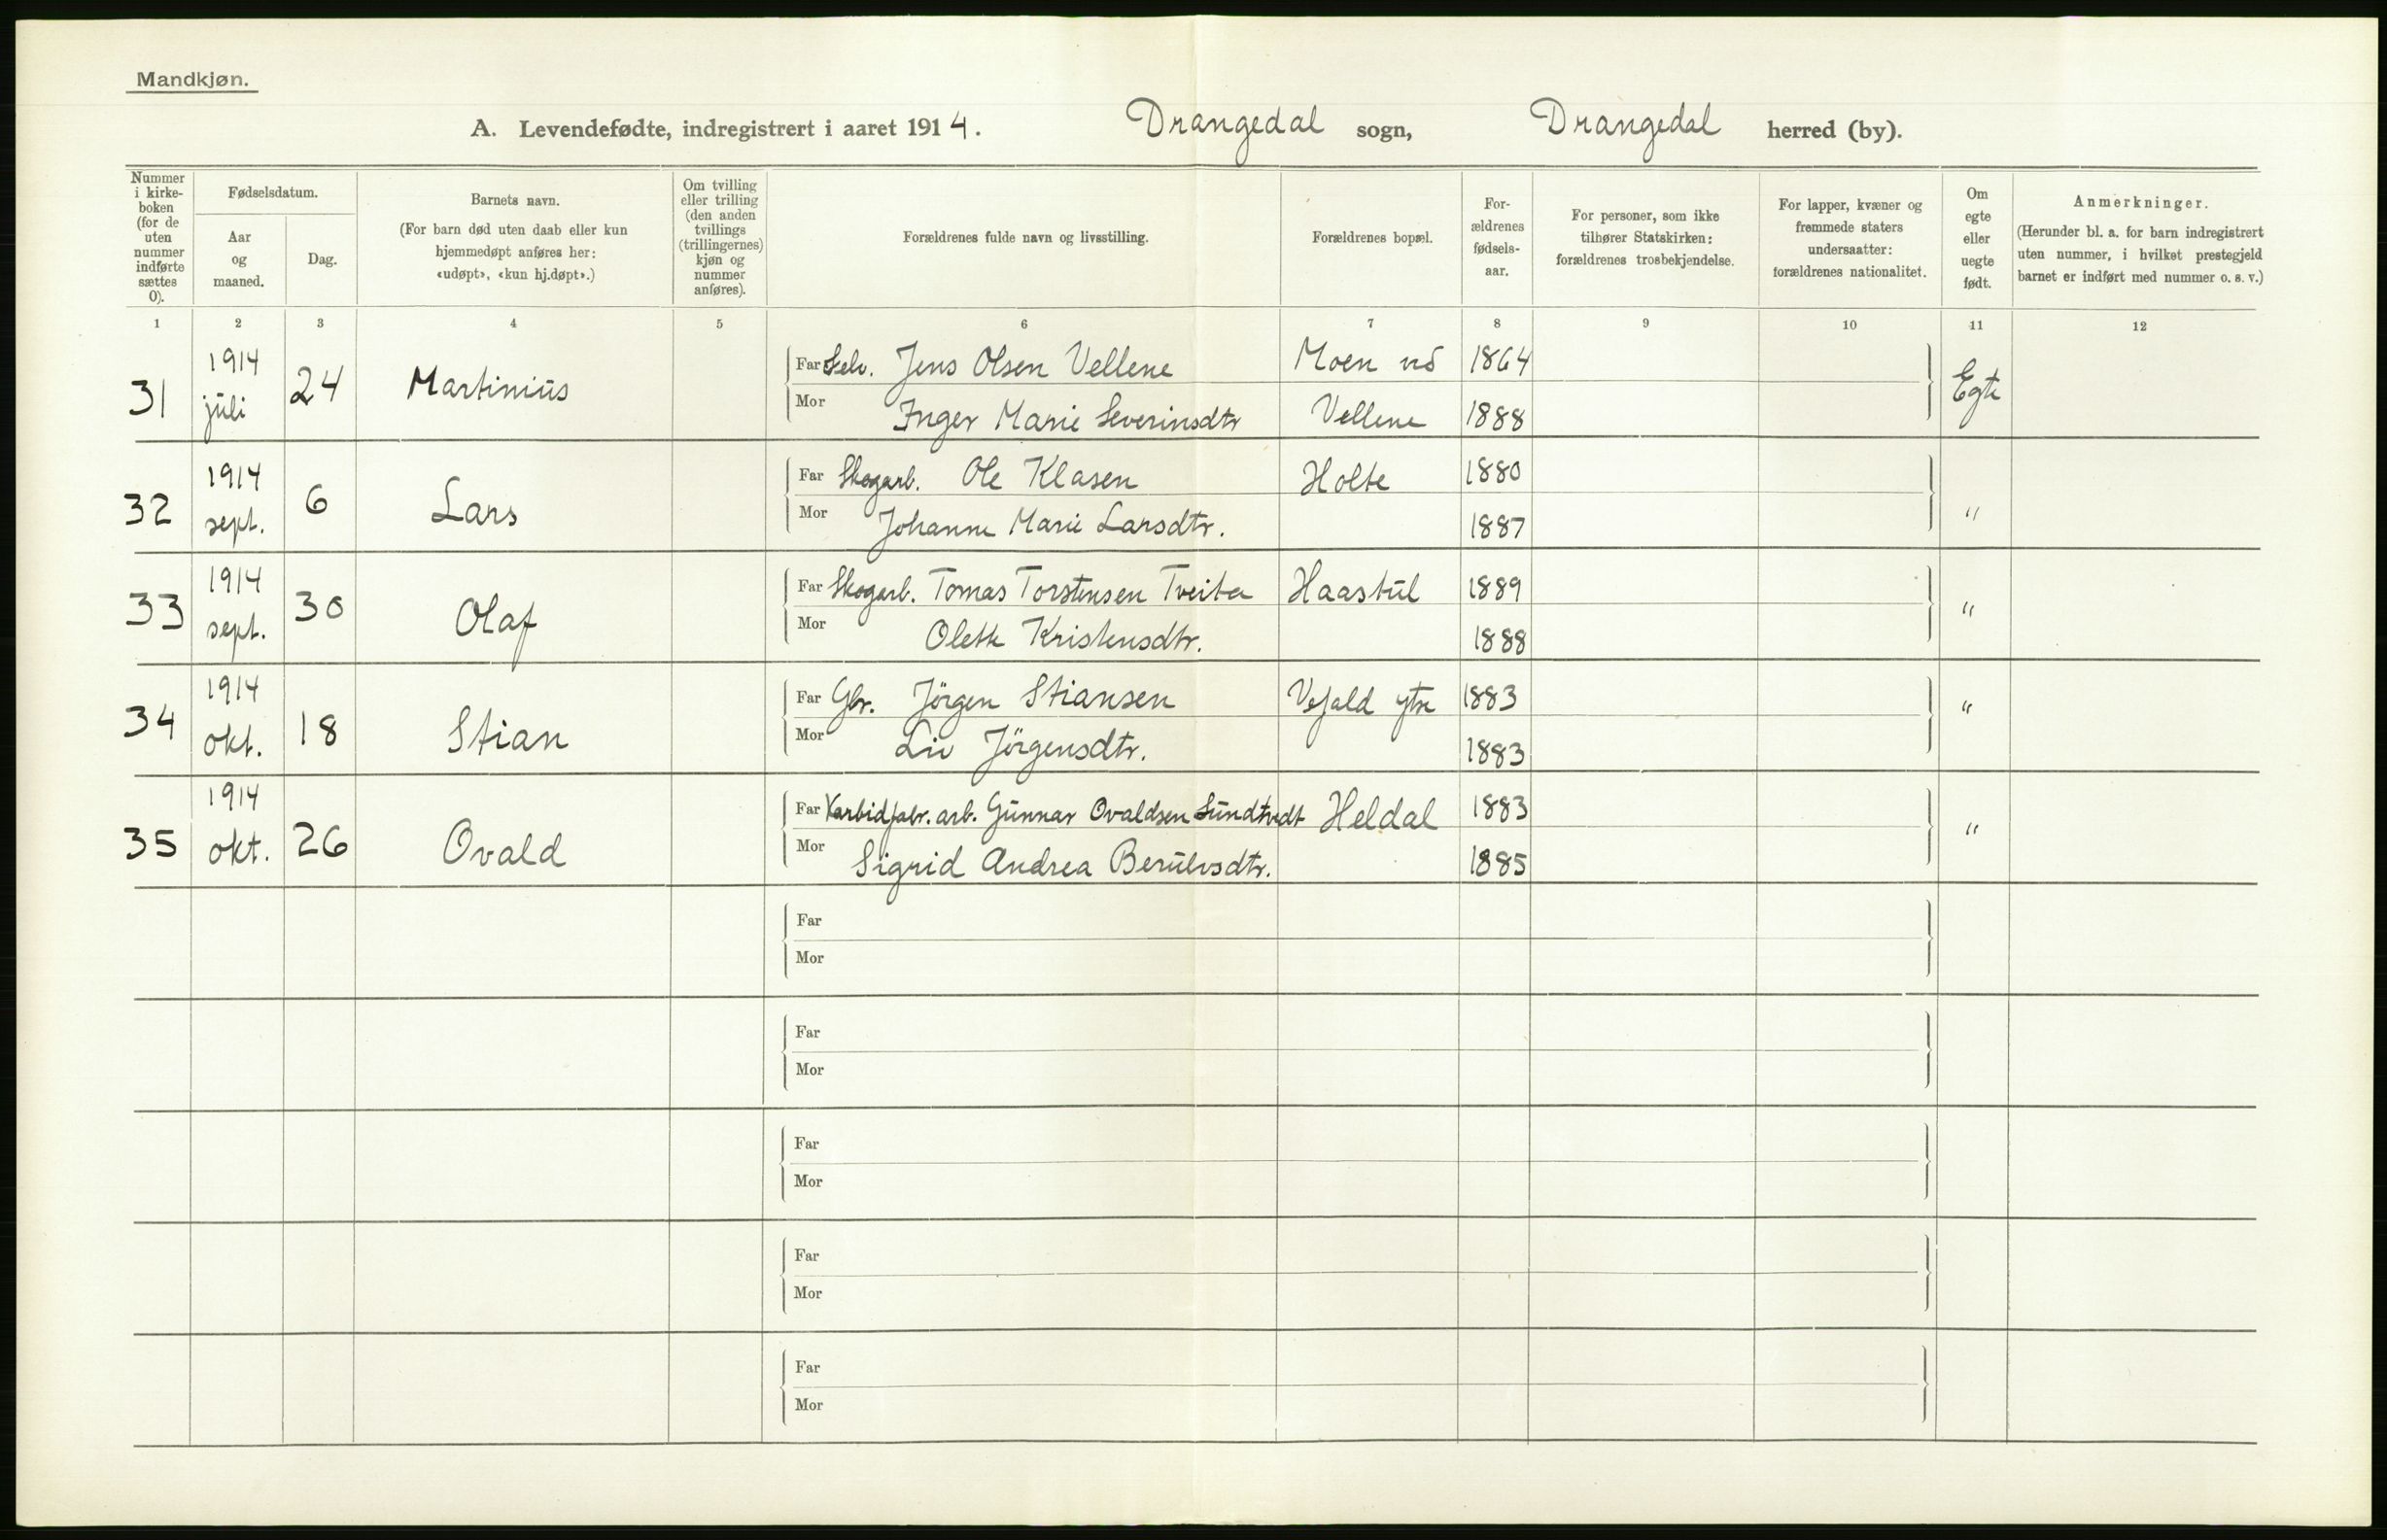 Mandkjøn.
A. Levendefødte, indregistrert i aaret 1914. Drangedal sogn, Drangedal herred (by).
Nummer i kirke-boken (for de uten nummer indførte sættes 0).
Fødselsdatum.
Aar og maaned.
Dag.
Barnets navn.
(For barn død uten daab eller kun hjemmedøpt anføres her: «udøpt», «kun hj.døpt».)
Om tvilling eller trilling (den anden tvillings (trillingernes) kjøn og nummer anføres).
Forældrenes fulde navn og livsstilling.
Forældrenes bopæl.
For-ældrenes fødsels-aar.
For personer, som ikke tilhører Statskirken: forældrenes trosbekjendelse.
For lapper, kvæner og fremmede staters undersaatter: forældrenes nationalitet.
Om egte eller uegte født.
Anmerkninger.
(Herunder bl. a. for barn indregistrert uten nummer, i hvilket prestegjeld barnet er indført med nummer o. s. v.)
1 2 3 4 5 6 7 8 9 10 11 12
31 1914 juli 24 Martinius Far Selv. Jens Olsen Vellene Moen 1864 Egte
Mor Inger Marie Severinsdtr Vellene 1888
32 1914 sept. 6 Lars Far Skogarb. Ole Klasen Holte 1880 "
Mor Johanne Marie Larsdtr. 1887
33 1914 sept. 30 Olaf Far Skogarb. Tomas Torstensen Tveita Haastul 1889 "
Mor Olette Kristensdtr. 1888
34 1914 okt. 18 Stian Far Gbr. Jörgen Stiansen Vefald ytre 1883 "
Mor Liv Jörgensdtr. 1883
35 1914 okt. 26 Ovald Far Karbidfabr. arb. Gunnar Ovaldsen Sundtvedt Heldal 1883 "
Mor Sigrid Andrea Berulvsdtr. 1885
Far
Mor
Far
Mor
Far
Mor
Far
Mor
Far
Mor